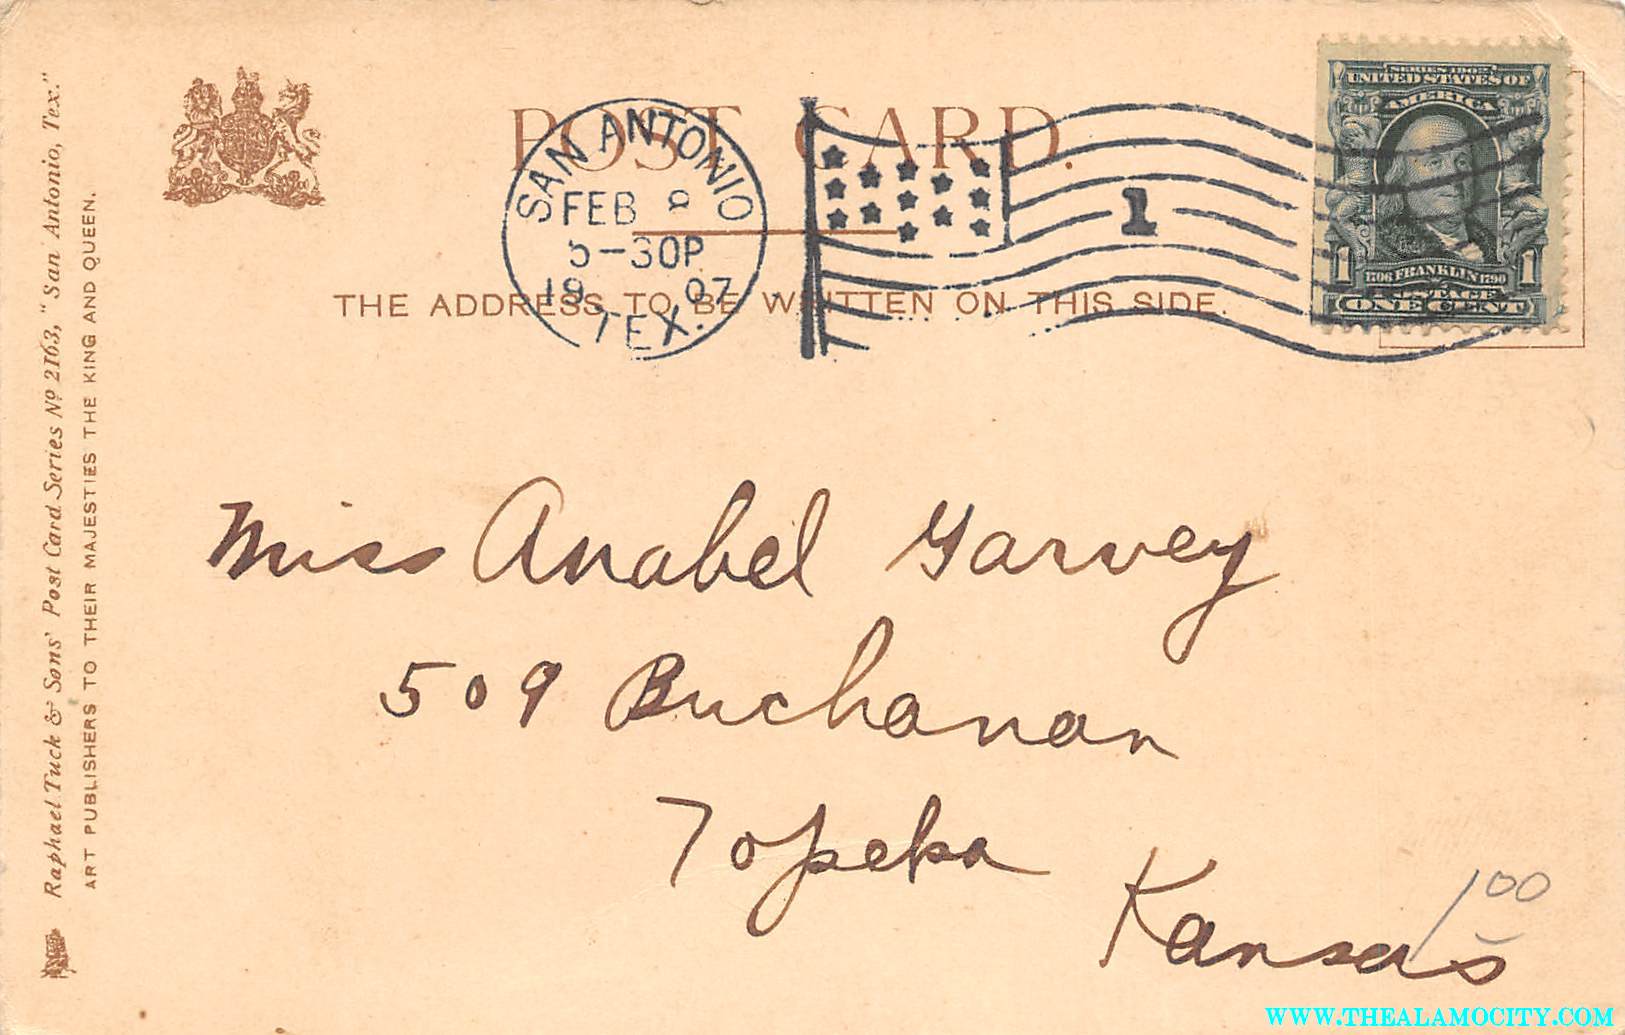 Raphael Tuck & Sons' Post Card Series Nº 2163, "San Antonio, Tex."
ART PUBLISHERS TO THEIR MAJESTIES THE KING AND QUEEN.
POST CARD.
SAN ANTONIO
FEB 8
5-30P
1907
TEX.
1
THE ADDRESS TO BE WRITTEN ON THIS SIDE.
SERIES 1902
UNITED STATES OF
AMERICA
1706 FRANKLIN 1790
1 1
POSTAGE
ONE CENT
Miss Anabel Garvey
509 Buchanan
Topeka
Kansas
1.00
WWW.THEALAMOCITY.COM